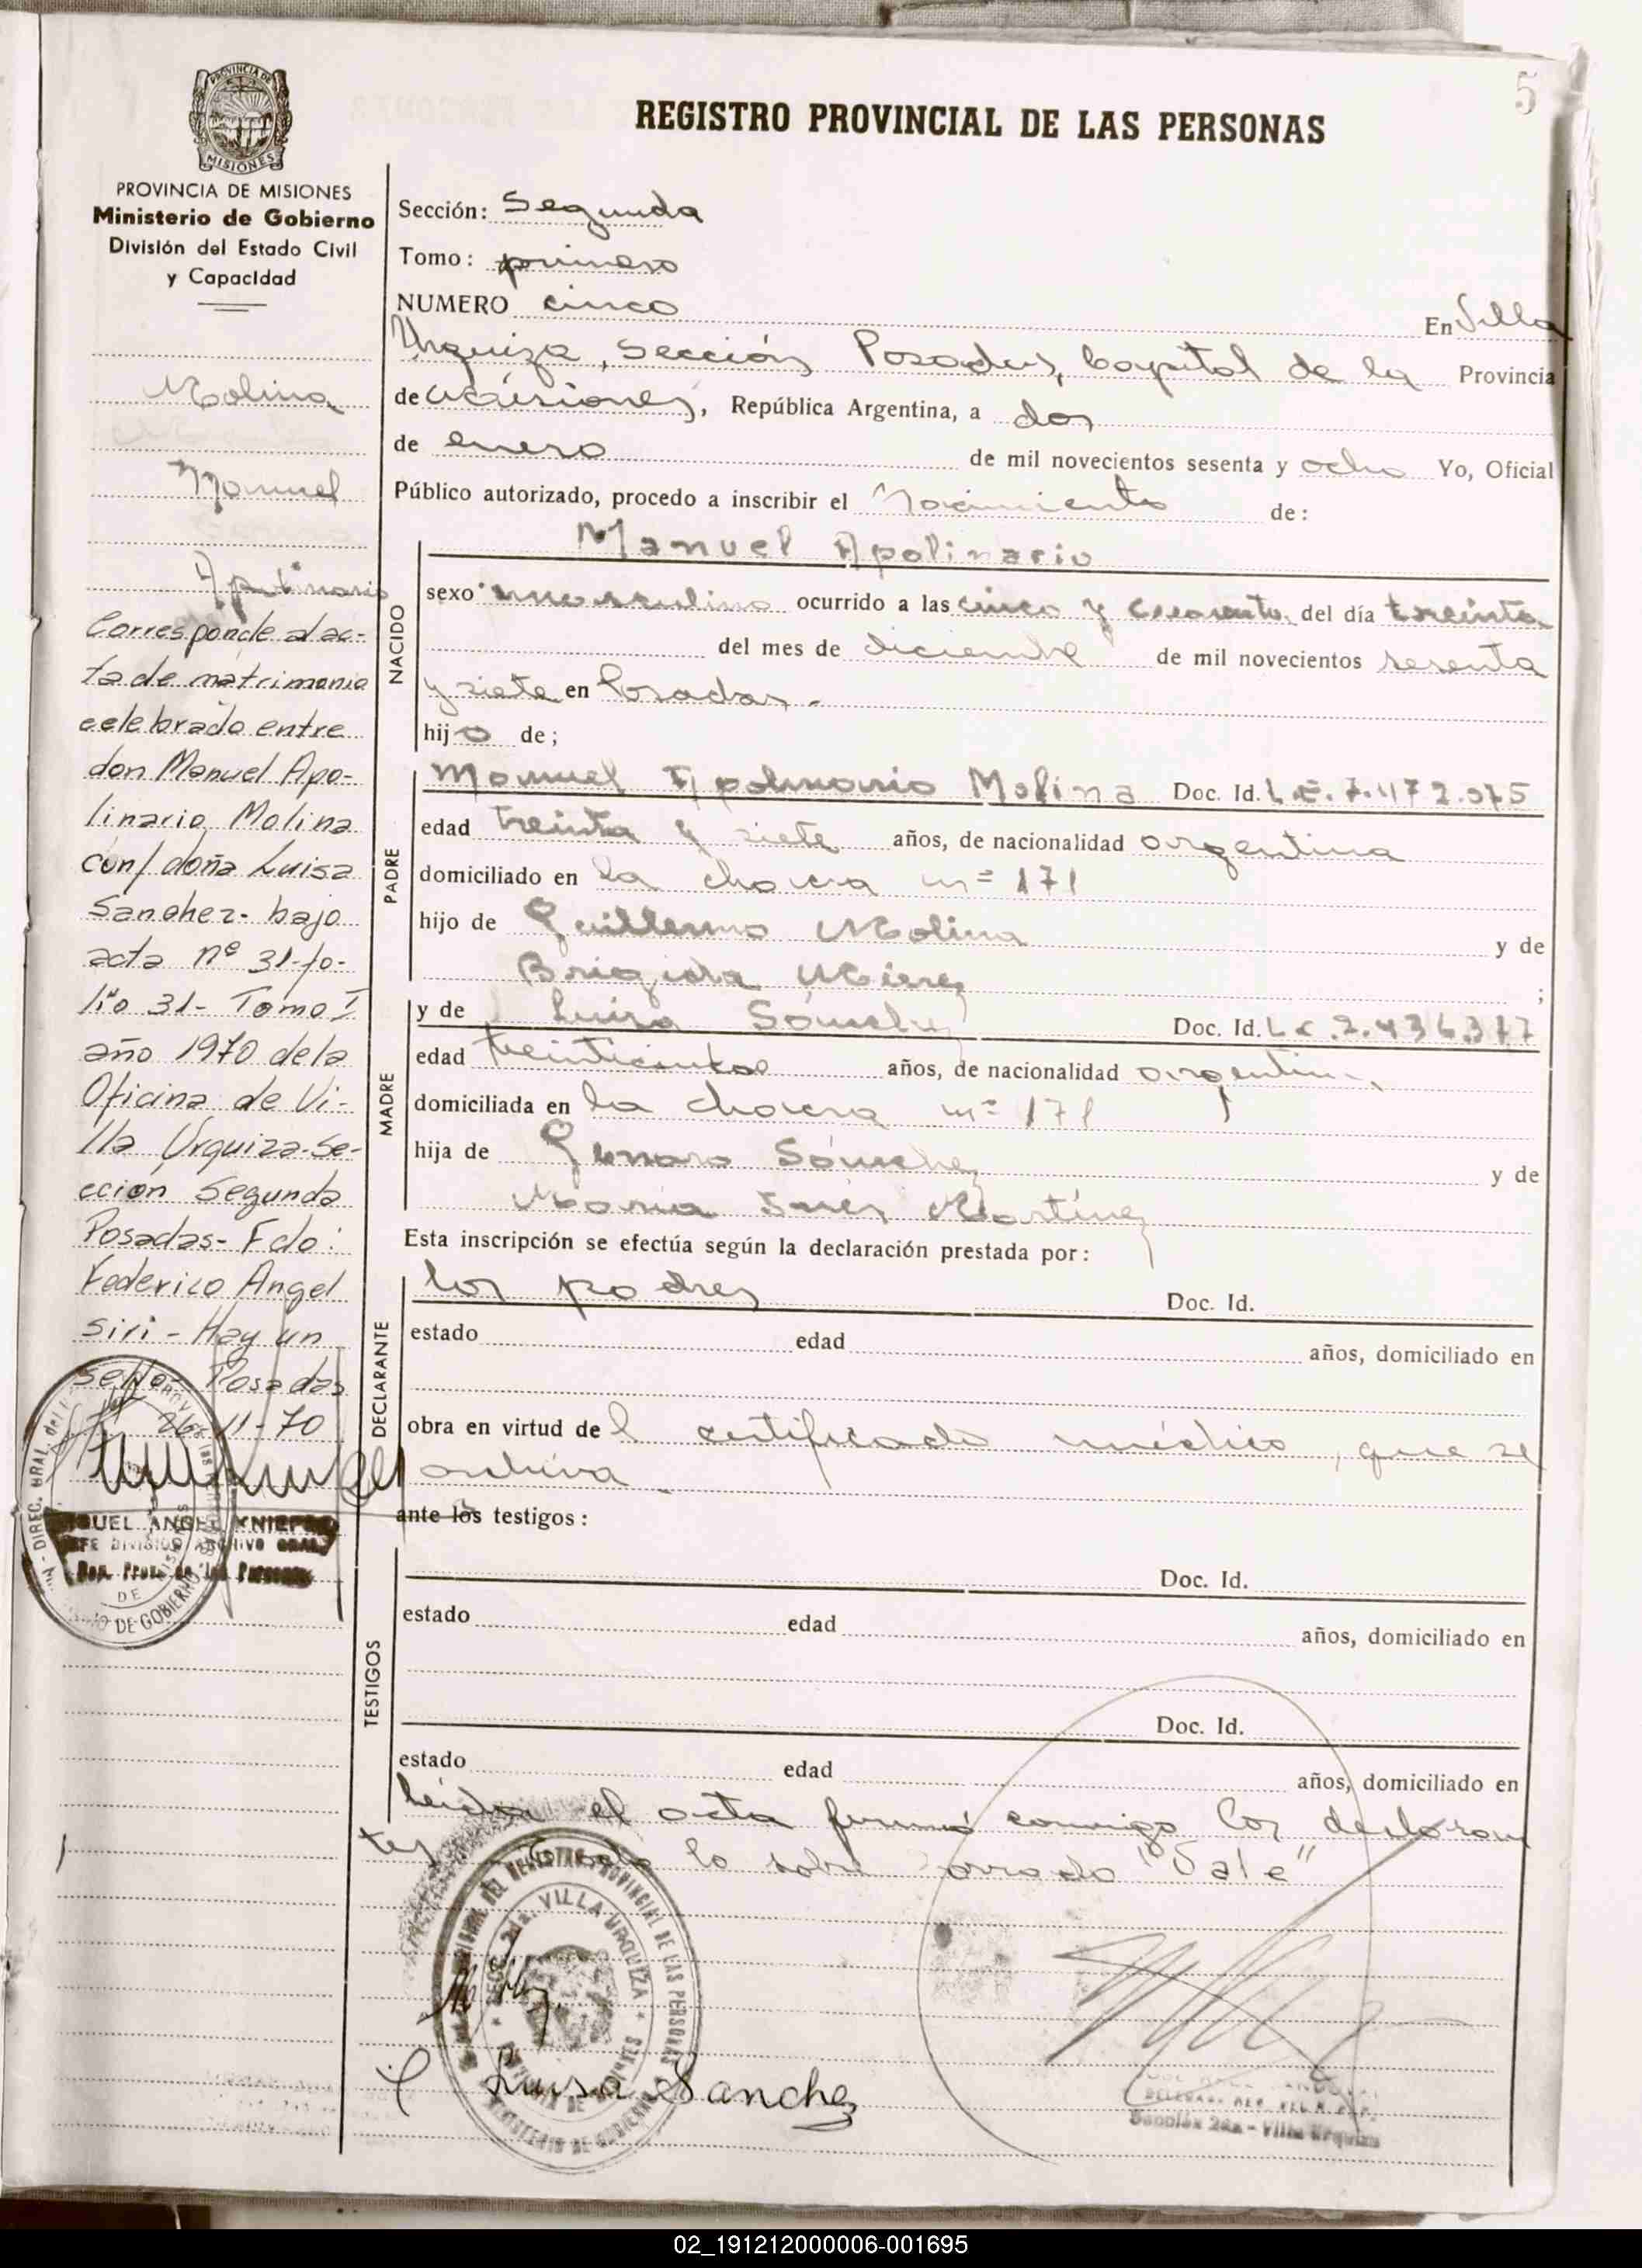 5
REGISTRO PROVINCIAL DE LAS PERSONAS
PROVINCIA DE MISIONES
PROVINCIA DE MISIONES
Ministerio de Gobierno
División del Estado Civil
y Capacidad
Molina
Manuel
Apolinario
Corresponde al ac-
ta de matrimonio
celebrado entre
don Manuel Apo-
linario Molina
con/ doña Luisa
Sanchez- bajo
acta nº 31-fo-
lio 31- Tomo I
año 1970 de la
Oficina de Vi-
lla Urquiza-Se-
ccion Segunda
Posadas- Fdo:
Federico Angel
Siri - Hay un
sello- Posadas
26-11-70
Sección: Segunda
Tomo: primero
NUMERO cinco En Villa
Urquiza, sección Posadas, Capital de la Provincia
de Misiones, República Argentina, a dos
de enero de mil novecientos sesenta y ocho Yo, Oficial
Público autorizado, procedo a inscribir el Nacimiento de:
NACIDO
Manuel Apolinario
sexo masculino ocurrido a las cinco y cuarenta del día treinta
del mes de diciembre de mil novecientos sesenta
y siete en Posadas.-
hijo de;
PADRE
Manuel Apolinario Molina Doc. Id. L.E. 7.472.075
edad treinta y siete años, de nacionalidad argentina
domiciliado en la chacra nº 171
hijo de Guillermo Molina y de
Brigida Mierez ;
MADRE
y de Luisa Sánchez Doc. Id. L.C. 2.436.317
edad años, de nacionalidad argentina
domiciliada en la chacra nº 171
hija de Genaro Sánchez y de
María Inés Martínez
Esta inscripción se efectúa según la declaración prestada por:
DECLARANTE
los padres Doc. Id.
estado edad años, domiciliado en
obra en virtud del certificado médico, que se
archiva -
ante los testigos:
TESTIGOS
Doc. Id.
estado edad años, domiciliado en
Doc. Id.
estado edad años, domiciliado en
Leida el acta firmó conmigo los declaran
tes Todo lo sobre borrado "Vale"
DE GOBIERNO
VILLA URQUIZA
PROVINCIAL DE LAS PERSONAS
Luisa Sanchez
Sección 2da - Villa Urquiza
02_191212000006-001695